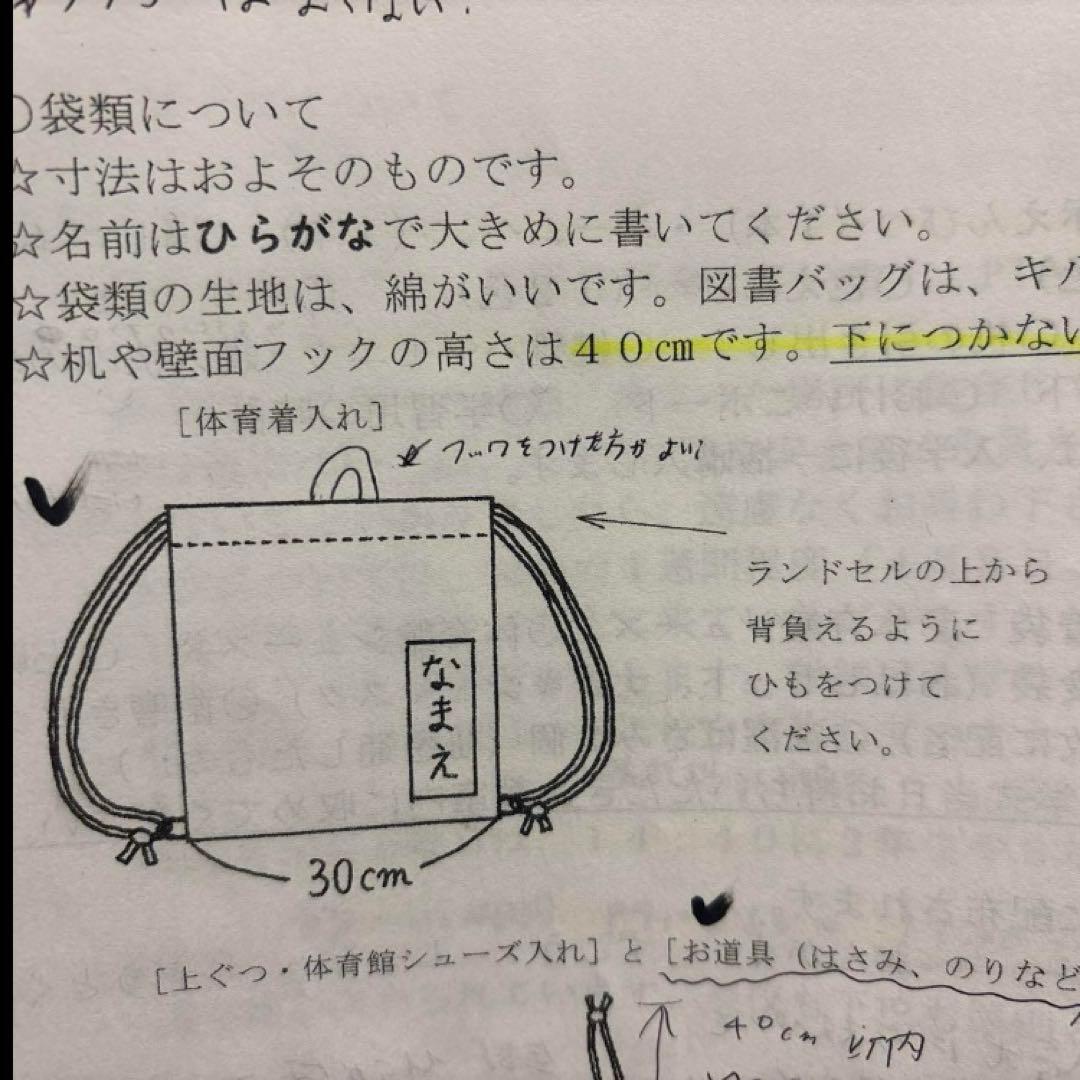 ○袋類について
☆寸法はおよそのものです。
☆名前はひらがなで大きめに書いてください。
☆袋類の生地は、綿がいいです。図書バッグは、キル
☆机や壁面フックの高さは４０㎝です。下につかない
［体育着入れ］
フックをつけた方がよい
ランドセルの上から
背負えるように
ひもをつけて
ください。
なまえ
30cm
［上ぐつ・体育館シューズ入れ］と［お道具（はさみ、のりなど
40cm 以内